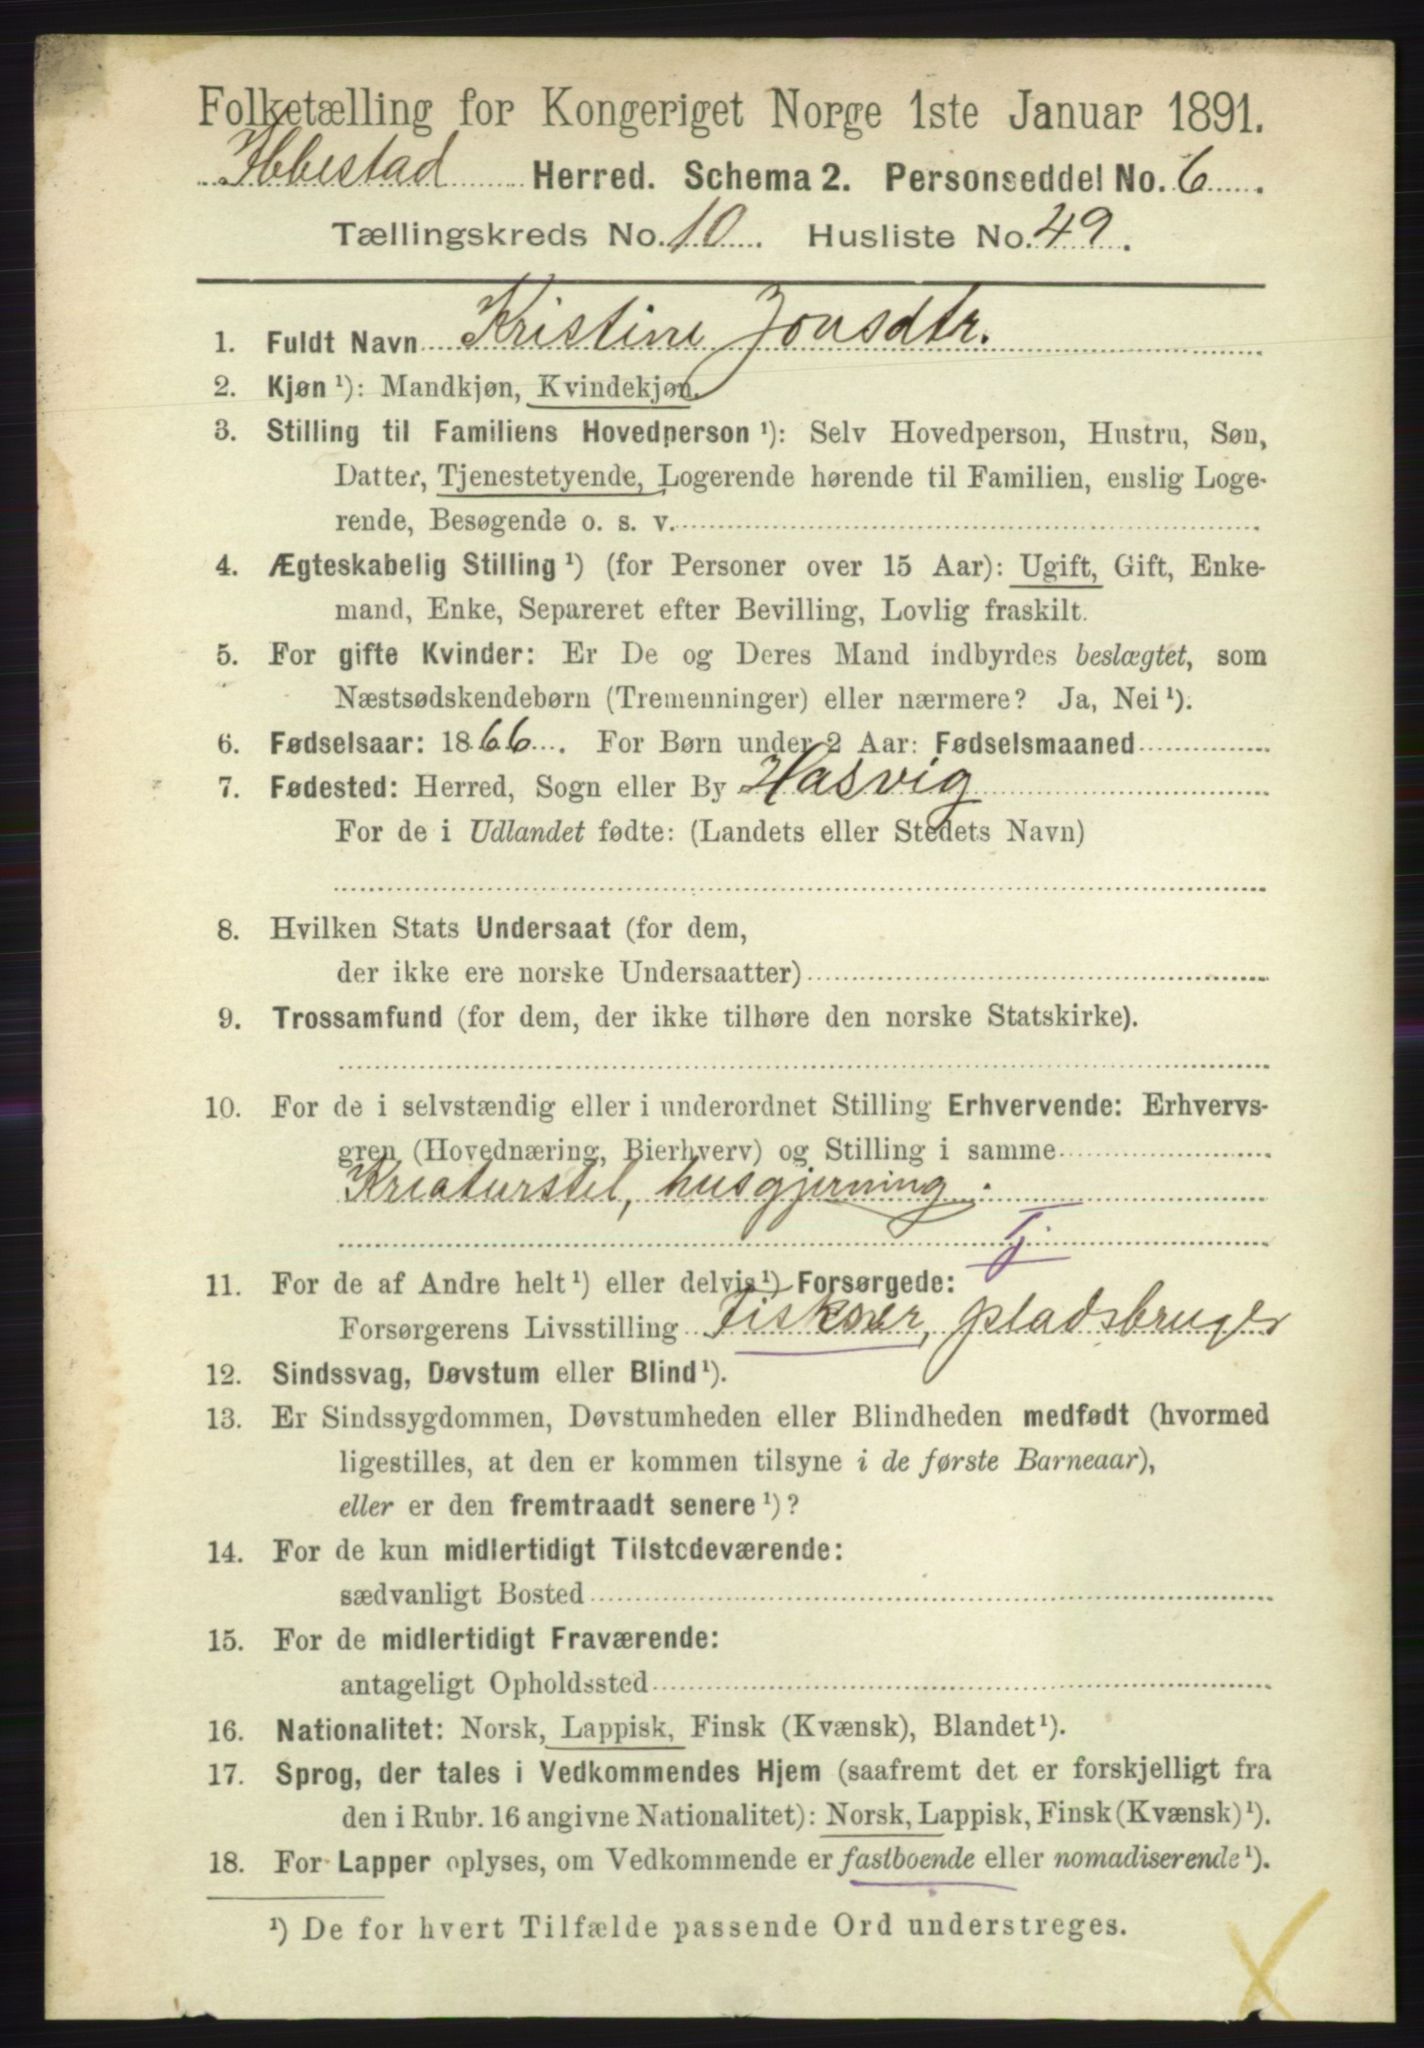 Folketælling for Kongeriget Norge 1ste Januar 1891.
Ibbestad Herred. Schema 2. Personseddel No. 6
Tællingskreds No. 10. Husliste No. 49.
1. Fuldt Navn Kristine Jonsdtr.
2. Kjøn ¹): Mandkjøn, Kvindekjøn.
3. Stilling til Familiens Hovedperson ¹): Selv Hovedperson, Hustru, Søn,
Datter, Tjenestetyende, Logerende hørende til Familien, enslig Loge-
rende, Besøgende o. s. v.
4. Ægteskabelig Stilling ¹) (for Personer over 15 Aar): Ugift, Gift, Enke-
mand, Enke, Separeret efter Bevilling, Lovlig fraskilt.
5. For gifte Kvinder: Er De og Deres Mand indbyrdes beslægtet, som
Næstsødskendebørn (Tremenninger) eller nærmere? Ja, Nei ¹).
6. Fødselsaar: 1866. For Børn under 2 Aar: Fødselsmaaned
7. Fødested: Herred, Sogn eller By Hasvig
For de i Udlandet fødte: (Landets eller Stedets Navn)
8. Hvilken Stats Undersaat (for dem,
der ikke ere norske Undersaatter)
9. Trossamfund (for dem, der ikke tilhøre den norske Statskirke).
10. For de i selvstændig eller i underordnet Stilling Erhvervende: Erhvervs-
gren (Hovednæring, Bierhverv) og Stilling i samme
Kreaturstel, husgjerning.
Tj
11. For de af Andre helt ¹) eller delvis ¹) Forsørgede:
Forsørgerens Livsstilling Fisker, pladsbruger
12. Sindssvag, Døvstum eller Blind ¹).
13. Er Sindssygdommen, Døvstumheden eller Blindheden medfødt (hvormed
ligestilles, at den er kommen tilsyne i de første Barneaar),
eller er den fremtraadt senere ¹)?
14. For de kun midlertidigt Tilstedeværende:
sædvanligt Bosted
15. For de midlertidigt Fraværende:
antageligt Opholdssted
16. Nationalitet: Norsk, Lappisk, Finsk (Kvænsk), Blandet ¹).
17. Sprog, der tales i Vedkommendes Hjem (saafremt det er forskjelligt fra
den i Rubr. 16 angivne Nationalitet): Norsk, Lappisk, Finsk (Kvænsk) ¹).
18. For Lapper oplyses, om Vedkommende er fastboende eller nomadiserende ¹).
¹) De for hvert Tilfælde passende Ord understreges.